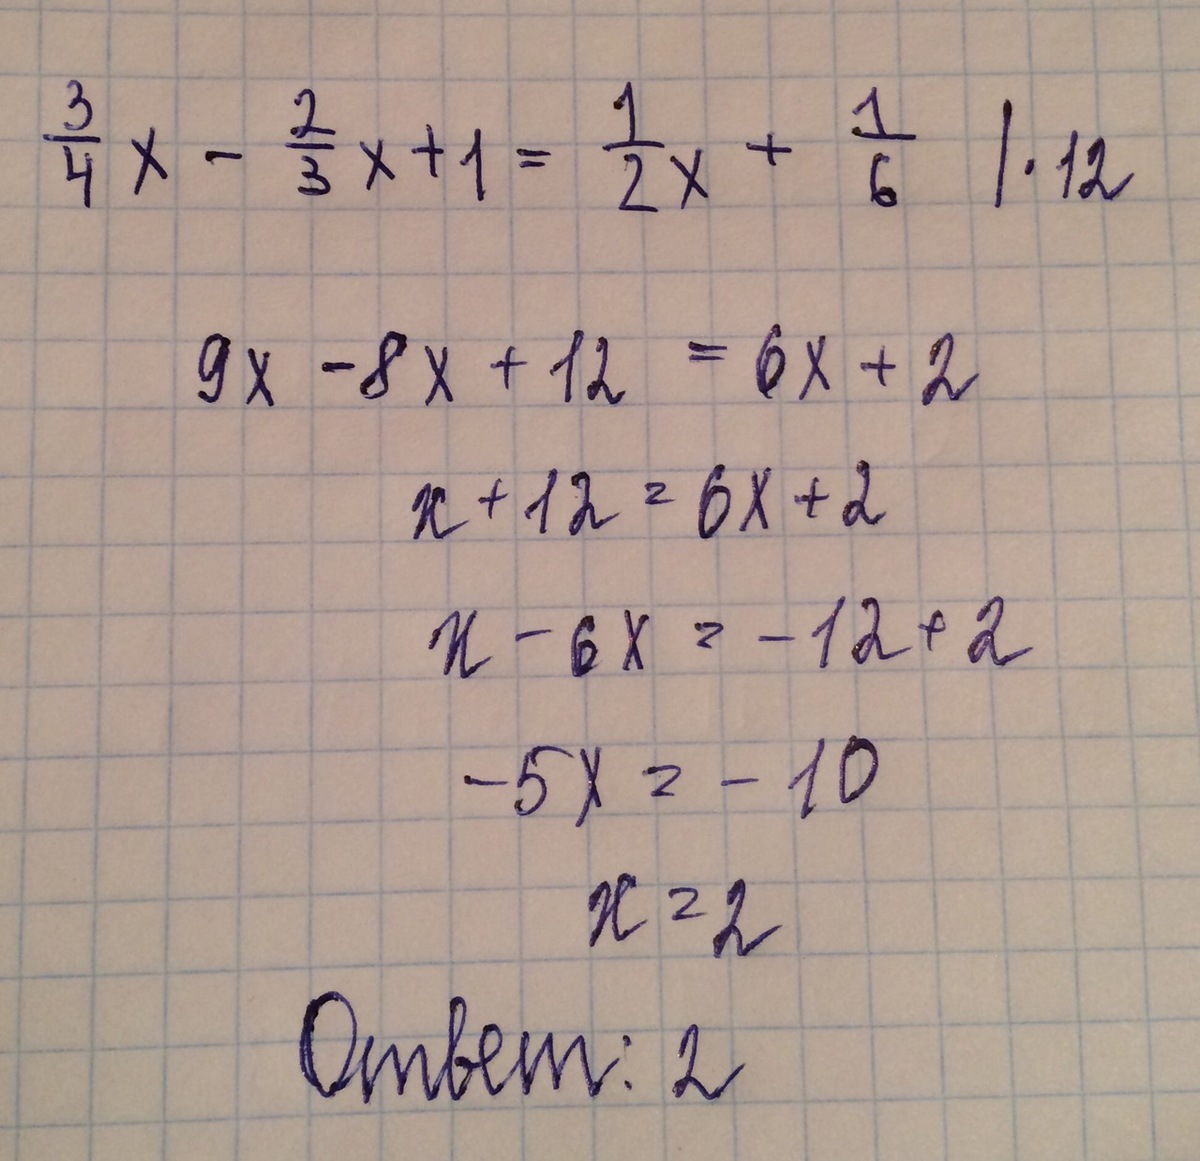 3/4 x - 2/3 x + 1 = 1/2 x + 1/6 | · 12
9x - 8x + 12 = 6x + 2
x + 12 = 6x + 2
x - 6x = -12 + 2
-5x = -10
x = 2
Ответ: 2